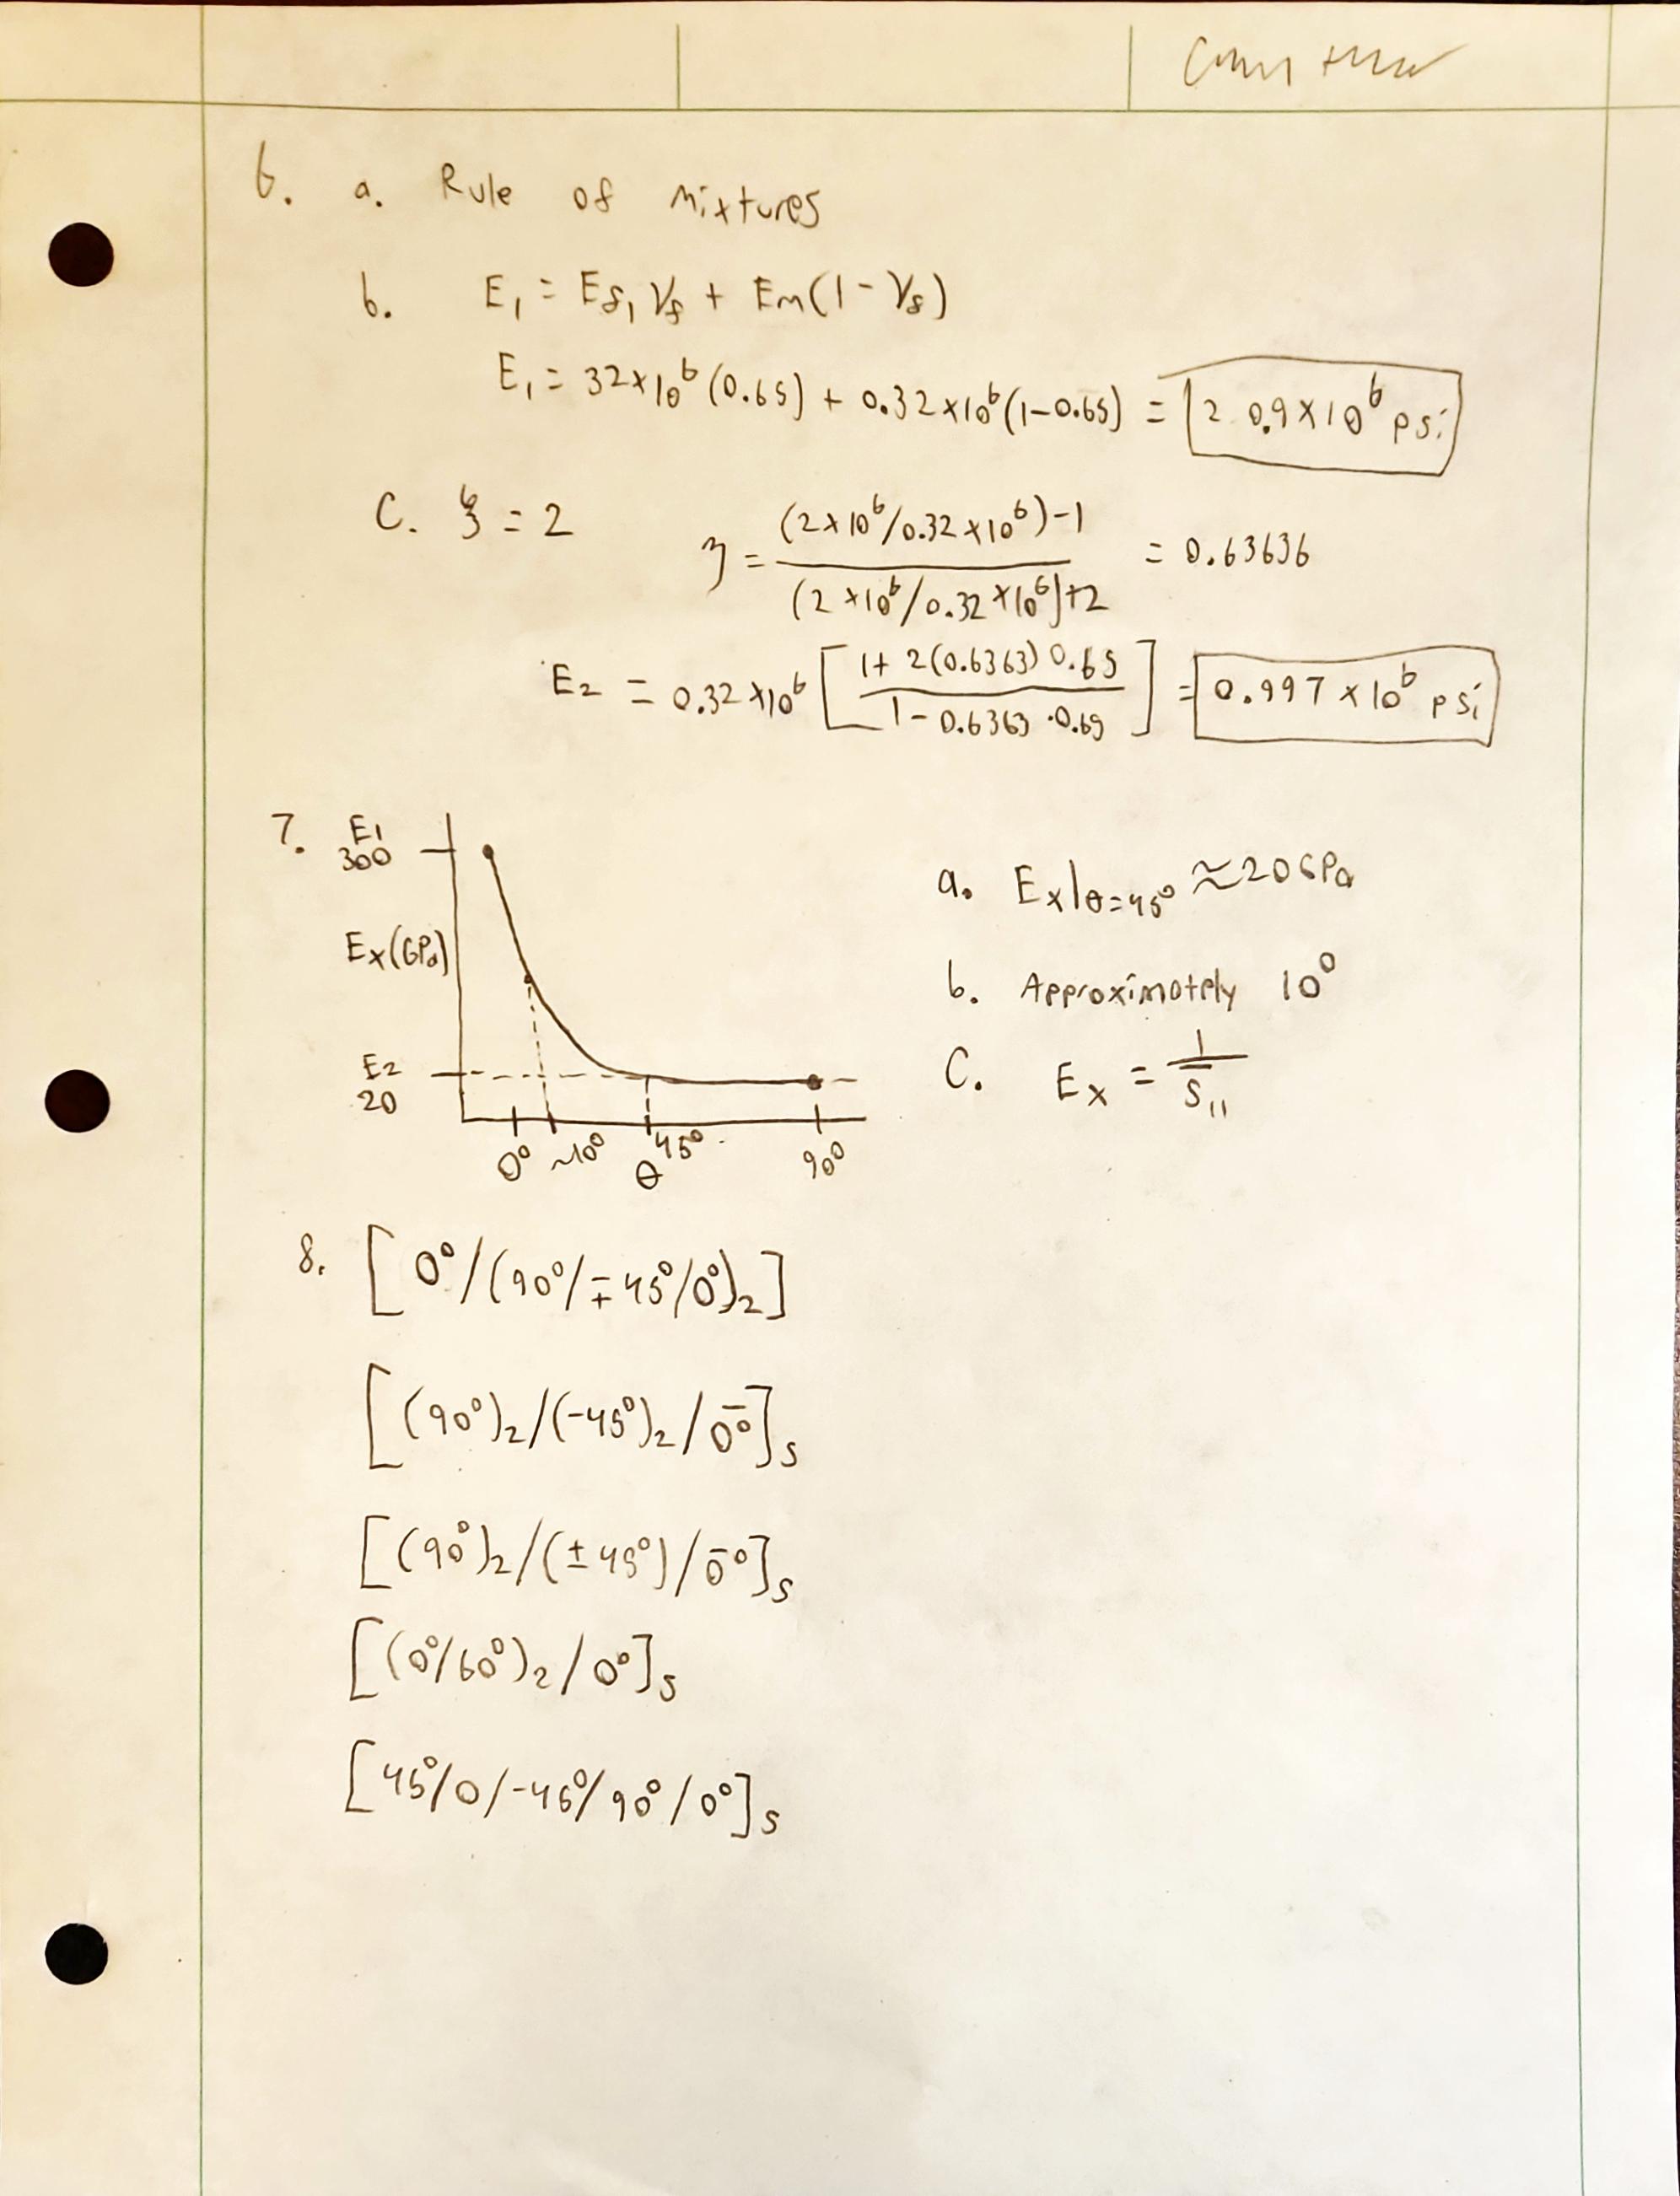 6. a. Rule of Mixtures
b. E₁ = Ef₁ Vf + Em(1 - Vf)
E₁ = 32×10⁶ (0.65) + 0.32×10⁶(1-0.65) = 20.9×10⁶ psi
C. ξ = 2 η = (2×10⁶/0.32×10⁶)-1 / (2×10⁶/0.32×10⁶)+2 = 0.63636
E₂ = 0.32×10⁶ [1+ 2(0.6363)0.65 / 1-0.6363·0.65] = 0.997×10⁶ psi
7. E₁
300
Ex(GPa)
E₂
20
0° ~10° 45° 90°
θ
a. Ex|θ=45° ≈20GPa
b. Approximately 10°
C. Ex = 1/S₁₁
8. [0°/(90°/∓45°/0°)₂]
[(90°)₂/(-45°)₂/0̅°]s
[(90°)₂/(±45°)/0̅°]s
[(0°/60°)₂/0°]s
[45°/0/-45°/90°/0°]s